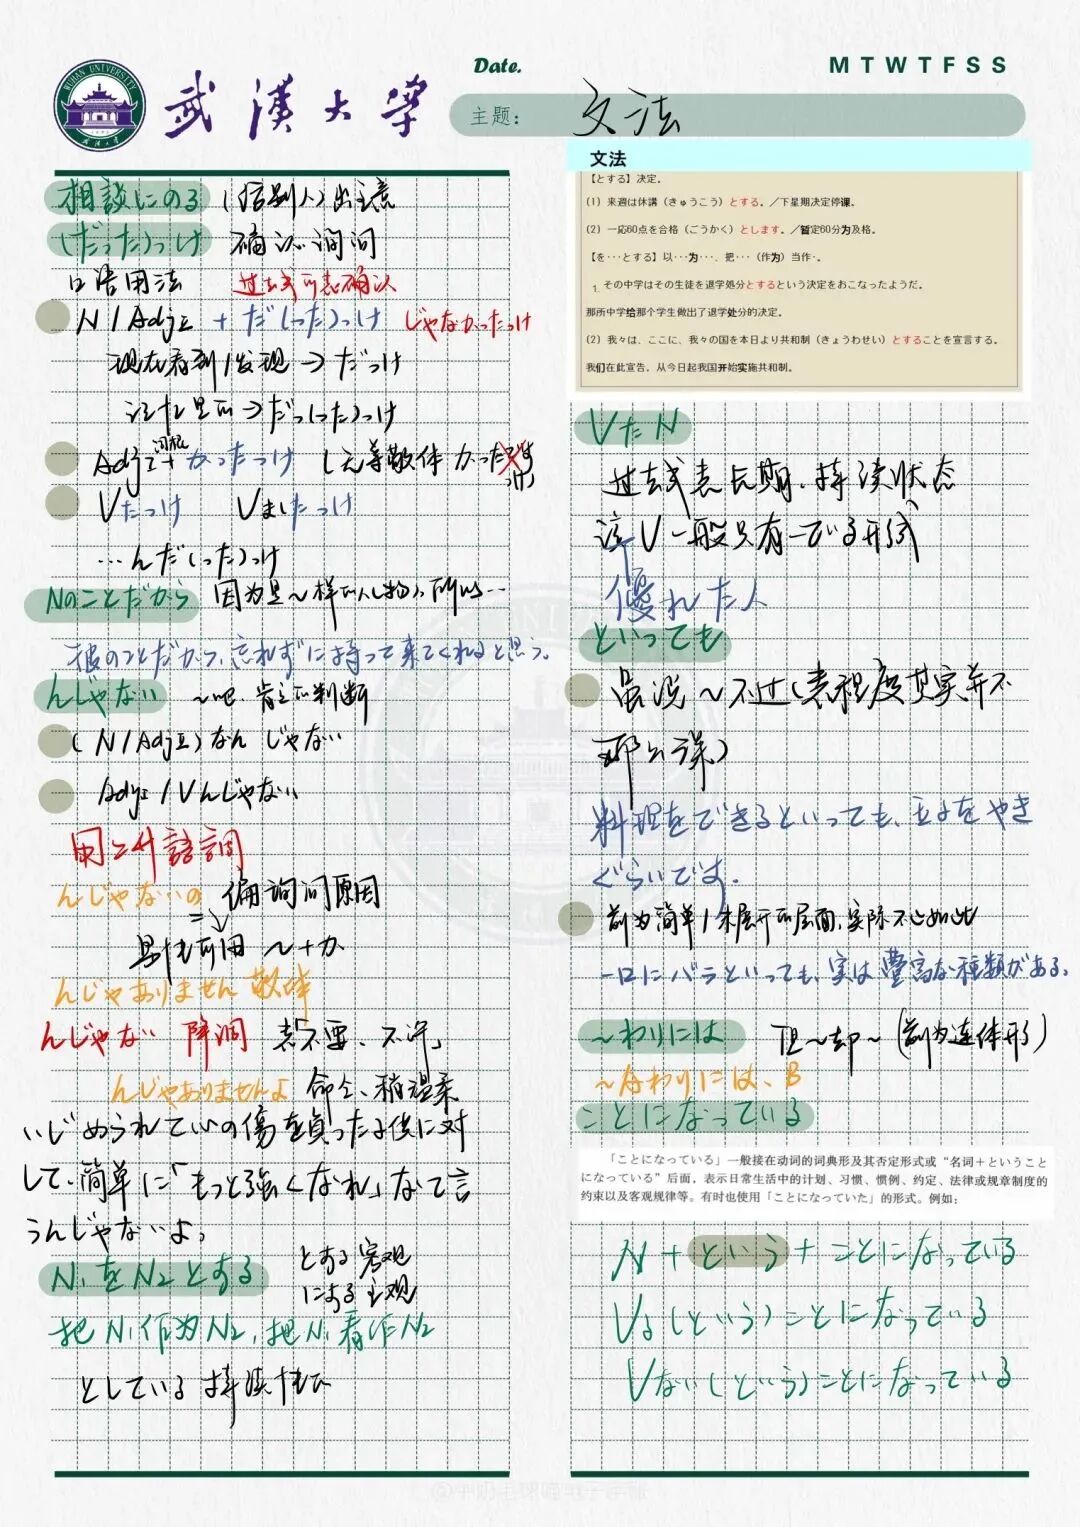 WUHAN UNIVERSITY
武漢大學
Date.
M T W T F S S
主题：
文法
相談にのる （给别人）出主意
（だった）っけ 确认询问
口语用法 过去式可表确认
N / AdjⅡ + だ（った）っけ じゃなかったっけ
现在看到/发现 → だっけ
→ だっ（た）っけ
AdjⅠ + かったっけ （无尊敬体 かったですっけ）
词根
Vたっけ Vましたっけ
…んだ（った）っけ
Nのことだから 因为是～样的人（物）所以…
彼のことだから、忘れずに持って来てくれると思う。
んじゃない ～吧、肯定的判断
（N / AdjⅡ）なんじゃない
AdjⅠ / Vんじゃない
んじゃないの 偏询问原因
男性可用 ～+か
んじゃありません 敬体
んじゃない 降调 表「不要、不许」
んじゃありませんよ 命令、稍温柔
いじめられていの傷を負った子供に対
して、簡単に「もっと強くなれ」なて言
うんじゃないよ。
N₁をN₂とする
とする 客观
にする 主观
把N₁作为N₂，把N₁看作N₂
としている 持续
文法
【とする】决定。
（1）来週は休講（きゅうこう）とする。／下星期决定停课。
（2）一応60点を合格（ごうかく）とします。／暂定60分为及格。
【を···とする】以···为···、把···（作为）当作·。
1. その中学はその生徒を退学処分とするという決定をおこなったようだ。
那所中学给那个学生做出了退学处分的决定。
（2）我々は、ここに、我々の国を本日より共和制（きょうわせい）とすることを宣言する。
我们在此宣告。从今日起我国开始实施共和制。
VたN
过去式表长期、持续状态
这V一般只有－ている形式
優れた人
といっても
虽说～不过（表程度其实并不
那么深）
料理をできるといっても、玉子をやき
ぐらいです.
前为简单/未展开的层面，实际不止如此
一口にバラといっても、実は豊富な種類がある。
～わりには 但～却～（前为连体形）
～Aわりには、B
ことになっている
「ことになっている」一般接在动词的词典形及其否定形式或“名词＋ということ
になっている”后面，表示日常生活中的计划、习惯、惯例、约定、法律或规章制度的
约束以及客观规律等。有时也使用「ことになっていた」的形式。例如：
N + という + ことになっている
Vる（という）ことになっている
Vない（という）ことになっている